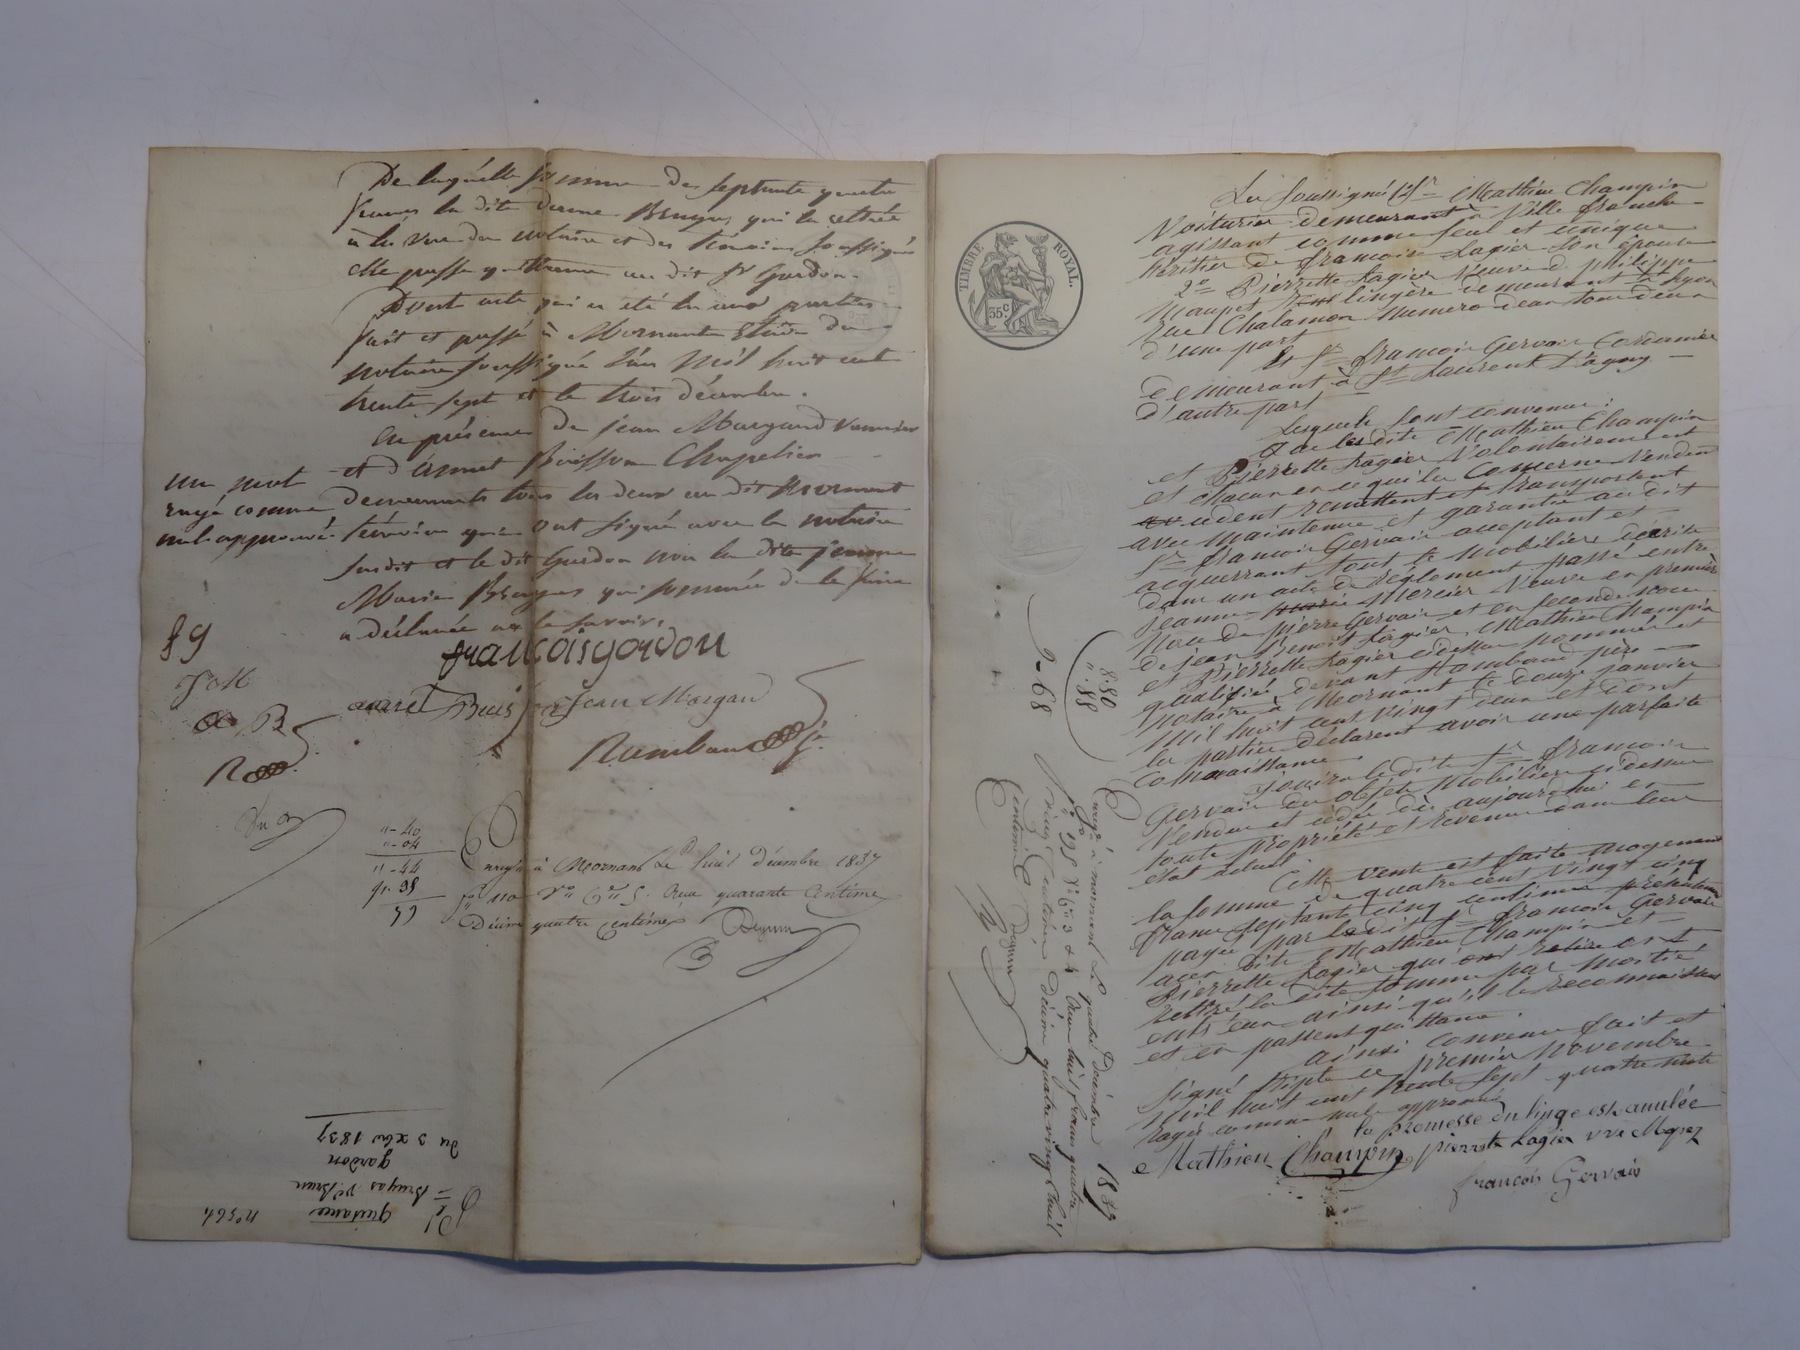 De laquelle somme de septante quatre
francs la dite dame Bruyas qui la retirée
à la vue du notaire et des témoins soussignés
elle passe quittance au dit Sr Gardon.
Dont acte qui a été lu aux parties
fait et passé à Mornant Etude du
notaire soussigné l'an mil huit cent
trente sept et le trois décembre.
En présence de jean Morgand
et d' Buisson Chapelier
demeurants tous les deux au dit Mornant
témoins qui ont signé avec le notaire
susdit et le dit Gardon non la dite femme
Marie Bruyas qui sommée de le faire
a déclarée ne le savoir.
un mot
rayé comme
nul approuvé.
fg
JM
B
R
françois gordon
Buisson Jean Morgan
Rambaud
"-40
"-04
"-44
99
Enregé à Mornant Le huit Décembre 1837
fo 110 Vo Ces 5. Reçu quarante Centimes
Décime quatre Centimes
du 3 xbre 1837
gardon
Bruyas Ve Brun
Quittance
no 564
TIMBRE ROYAL.
35c
Les soussignés 1° Sr Mathieu Champin
Voiturier demeurant à Ville franche
agissant comme seul et unique
héritier de francoise Lagier son épouse
2° Pierrette Lagier Veuve d philippe
lingère demeurant à Lyon
rue Chalamon Numero deux tous deux
d'une part
Et Sr francois Gervais Cordonnier
demeurant à St Laurent D'agny
d'autre part
Lesquels sont convenus:
que les dits Mathieu Champin
et Pierrette Lagier Volontairement
et chacun en ce qui les Concerne Vendent
cèdent remettent et transportent
avec maintenue et garantie au dit
Sr francois Gervais acceptant et
acquerrant tout le mobilier décrit
dans un acte de règlement passé entre
jeanne Mercier Veuve en premier
Noce de pierre Gervais et en seconde noce
de jean Benoit Lagier, Mathieu Champin
et Pierrette Lagier cidessus nommés et
qualifiés, devant Rambaud père
Notaire à Mornant le douze janvier
Mil huit cent vingt deux et dont
les parties déclarent avoir une parfaite
Connaissance.
jouira le dit Sr francois
Gervais des objets mobiliers cidessus
Vendus et cédés dès aujourd'hui en
toute propriété et revenu dans leur
état actuel
Cette vente est faite moyennant
la somme de quatre cent vingt cinq
francs septante cinq centimes présentement
payée par le dit Sr francois Gervais
aux dits Mathieu Champin et
Pierrette Lagier qui ont
retiré la dite somme par moitié
entr'eux ainsi qu'il le reconnaissent
et en passent quittance.
ainsi convenu fait et
signé triple ce premier Novembre
Mil huit cent trente sept quatre mots
rayés comme nuls approuvés
la promesse du linge est annulée
Mathieu Champin pierrete Lagier vve
francois Gervais
8.80
".88
9-68
Enregé à mornant Le quatre Décembre 1837
fo 198 Vo Ces 3 & 4 Reçu huit francs quatre
vingt Centimes Décime quatre vingt huit
Centimes